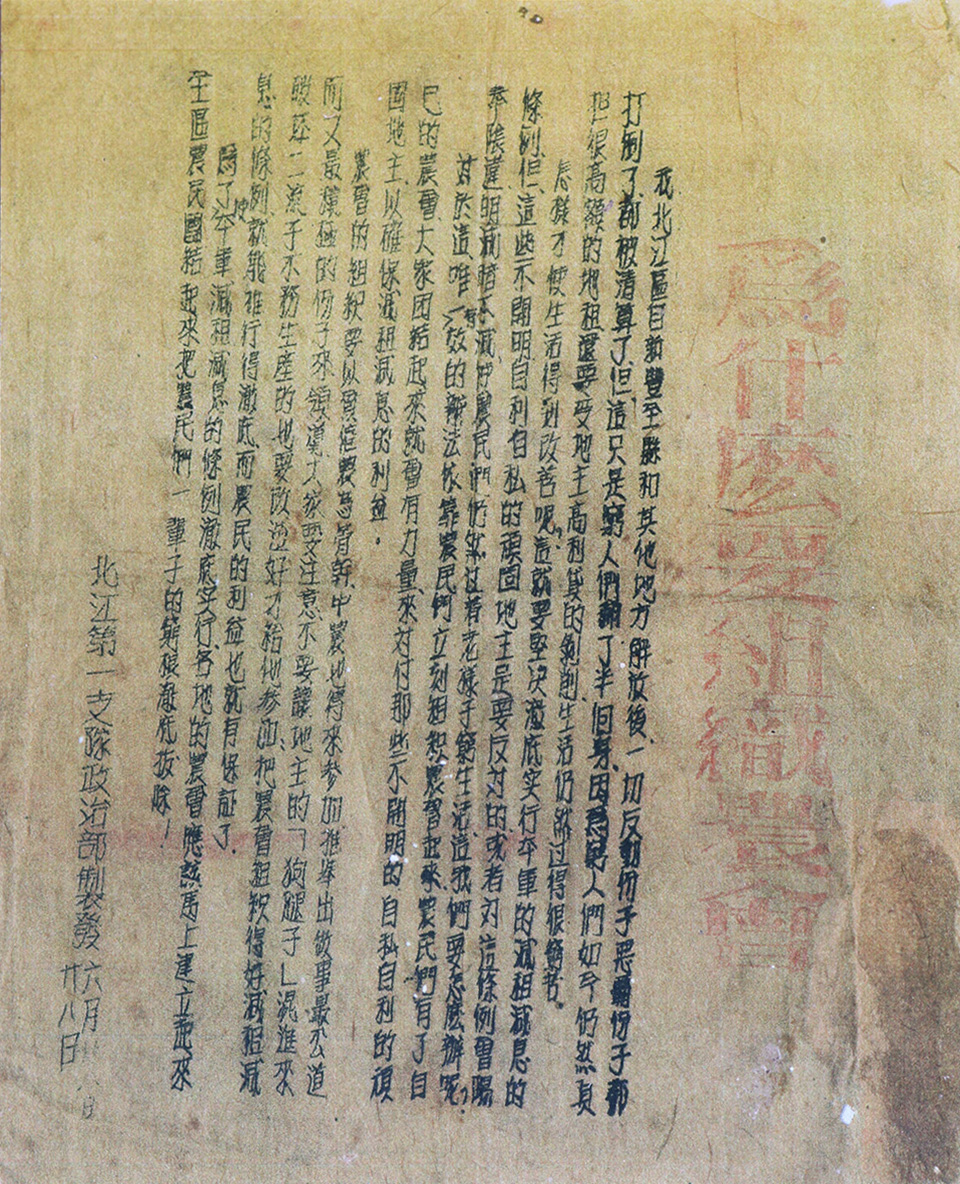 為什麼要組織農會
我北江區自新豐全縣和其他地方解放後、一切反動份子惡霸份子都
打倒了、都被清算了、但這只是窮人們翻了半個身、因為窮人們如今仍然負
担很高額的地租還要受地主高利貸的剝削、生活仍然过得很窮苦。
怎樣才使生活得到改善呢？這就要堅决澈底实行夲軍的減租減息的
條例、但這些不開明自利自私的頑固地主是要反对的或者对這條例會陽
奉陰違、明減暗不減、好農民們仍然过着老樣子窮生活、這我們要怎麽辦呢？
对於這唯一有效的辦法、依靠農民們立刻組織農會起來、農民們有了自
已的農會、大家团結起來就會有力量、來对付那些不開明的自私自利的頑
固地主、以確保減租減息的利益。
農會的組織要以貧僱農為骨幹、中農也得來參加、推舉出做事最公道
而又最積極的份子來領導、大家要注意、不要讓地主的「狗腿子」混進來
跛坯二流子不務生產的也要改造好才給他參加、把農會組織得好、減租減
息的條例、就能推行得澈底、而農民的利益也就有保証了。
為了使夲軍減租減息的條例澈底实行、各地的農會應該馬上建立起來
全區農民團結起來把農民們一輩子的窮根澈底拔除！
北江第一支隊政治部製發 六月廿八日